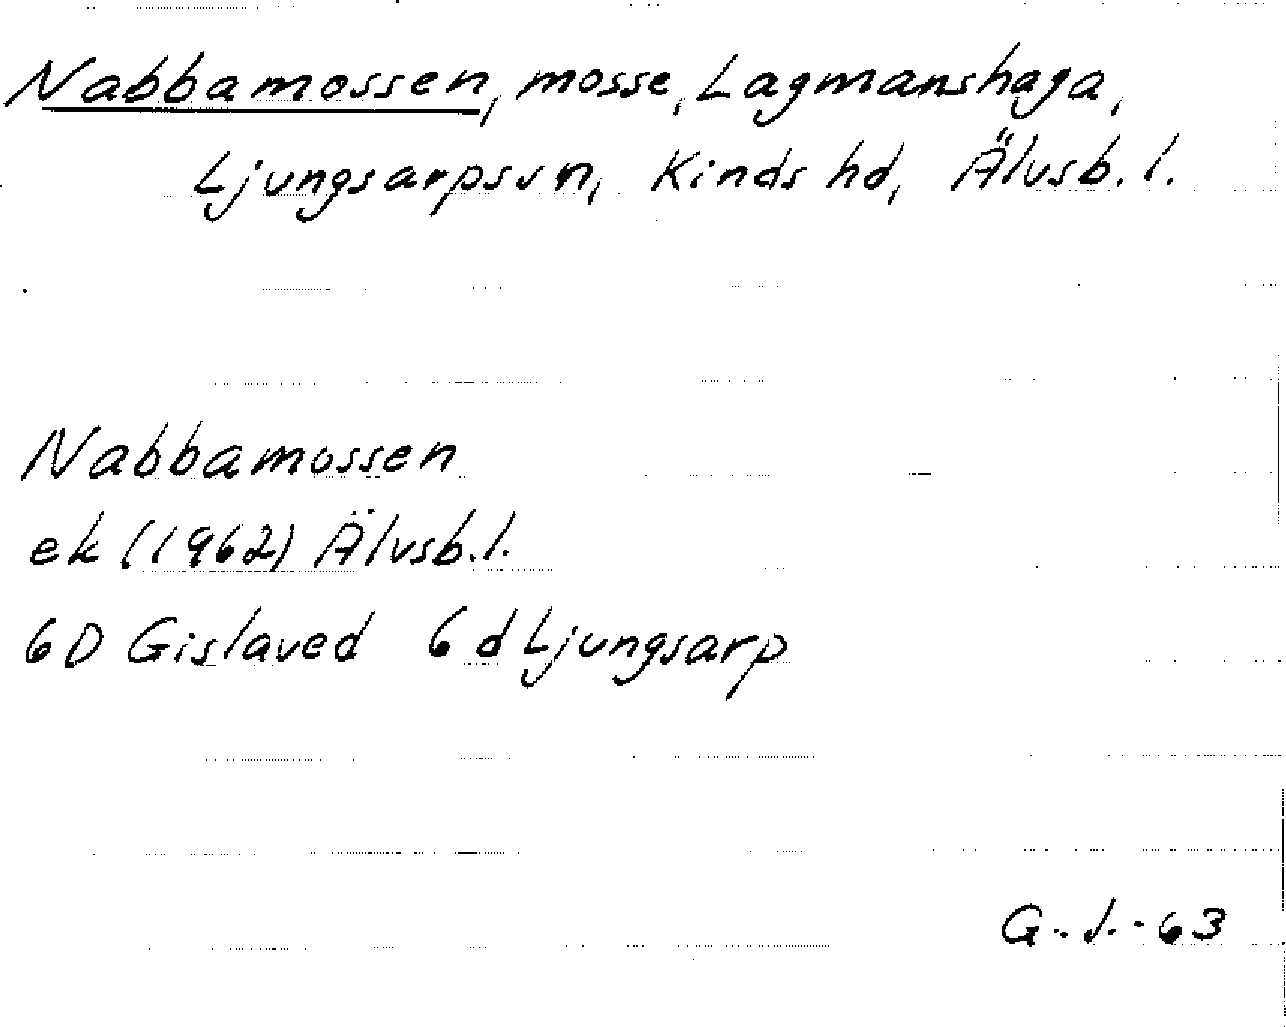 Nabbamossen, mosse, Lagmanshaga,
Ljungsarpsvn, Kinds hd, Älvsb. l.
Nabbamossen
ek (1962) Älvsb. l.
6D Gislaved 6 d Ljungsarp
G. J. - 63